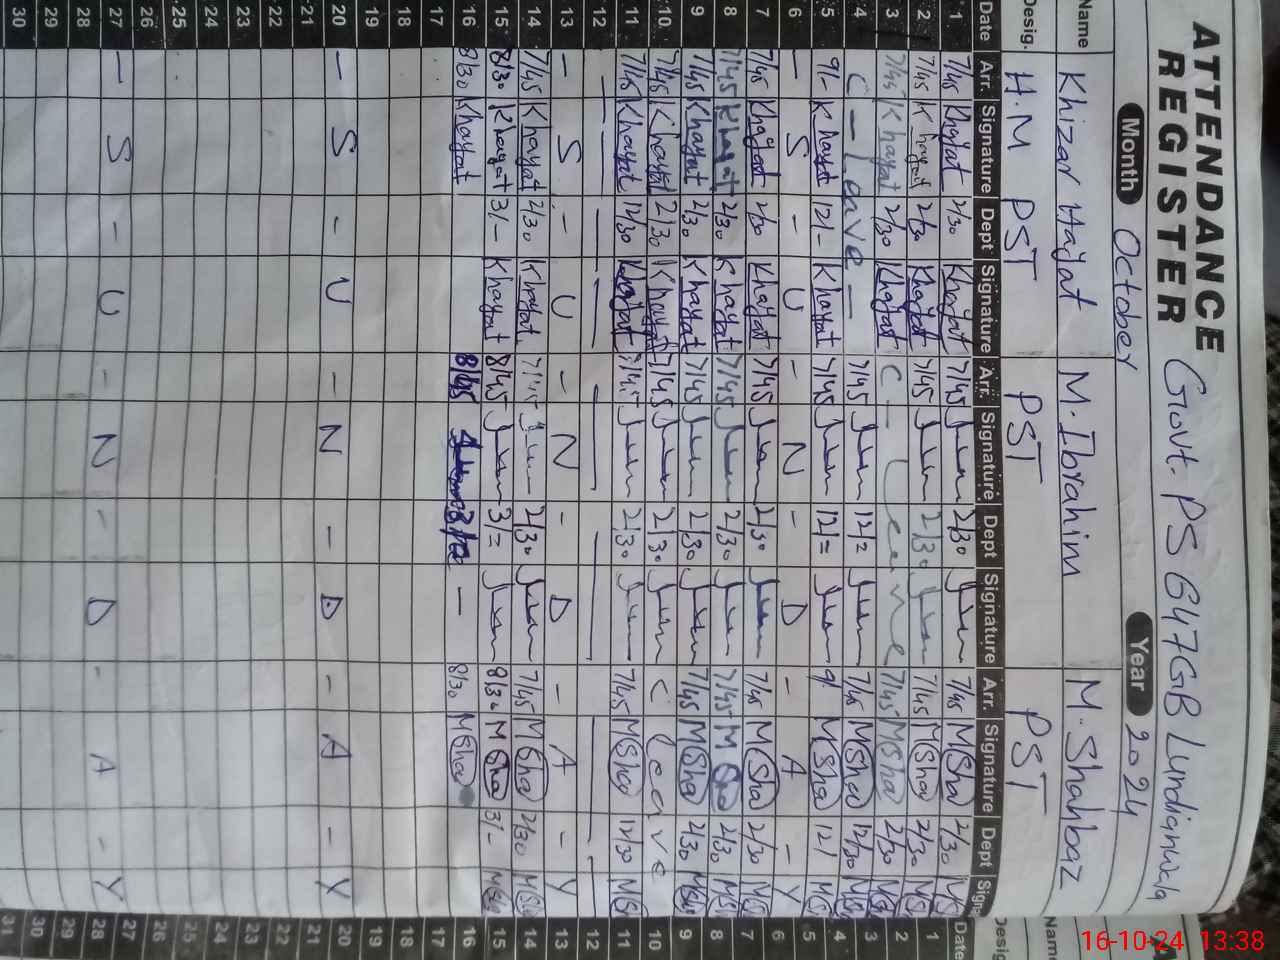 ATTENDANCE REGISTER
Govt. PS 647GB Lundianwala
Month October Year 2024
Name Khizar Hayat M. Ibrahim M. Shahbaz Name
Desig. H.M PST PST PST
Date Arr. Signature Dept Signature Arr. Signature Dept Signature Arr. Signature Dept Date
1 7/45 Khayat 2/30 Khayat 7/45 2/30 7/45 MSha 2/30 1
2 7/45 Khayat 2/30 Khayat 7/45 2/30 7/45 MSha 2/30 2
3 7/45 Khayat 2/30 Khayat C - Leave 7/45 MSha 2/30 3
4 C - Leave - 7/45 7/45 MSha 12/30 4
5 9/- Khayat 12/- Khayat 7/45 12/= 9/ MSha 12/ 5
6 - S - U - N - D - A - Y 6
7 7/45 Khayat 2/30 Khayat 7/45 2/30 7/45 MSha 2/30 7
8 7/45 Khayat 2/30 Khayat 7/45 2/30 7/45 MSha 2/30 8
9 7/45 Khayat 2/30 Khayat 7/45 2/30 7/45 MSha 2/30 9
10 7/45 Khayat 2/30 Khayat 7/45 2/30 C Leave 10
11 7/45 Khayat 12/30 Khayat 7/45 2/30 7/45 MSha 12/30 11
12 12
13 - S - U - N - D - A - Y 13
14 7/45 Khayat 2/30 Khayat 7/45 2/30 7/45 MSha 2/30 14
15 8/30 Khayat 3/- Khayat 8/45 3/= 8/30 MSha 3/- 15
16 8/30 Khayat 8/45 8/30 MSha 16
17 17
18 18
19 19
20 - S - U - N - D - A - Y 20
21 21
22 22
23 23
24 24
25 25
26 26
27 - S - U - N - D - A - Y 28
28 29
29 30
30 31
16-10-24 13:38